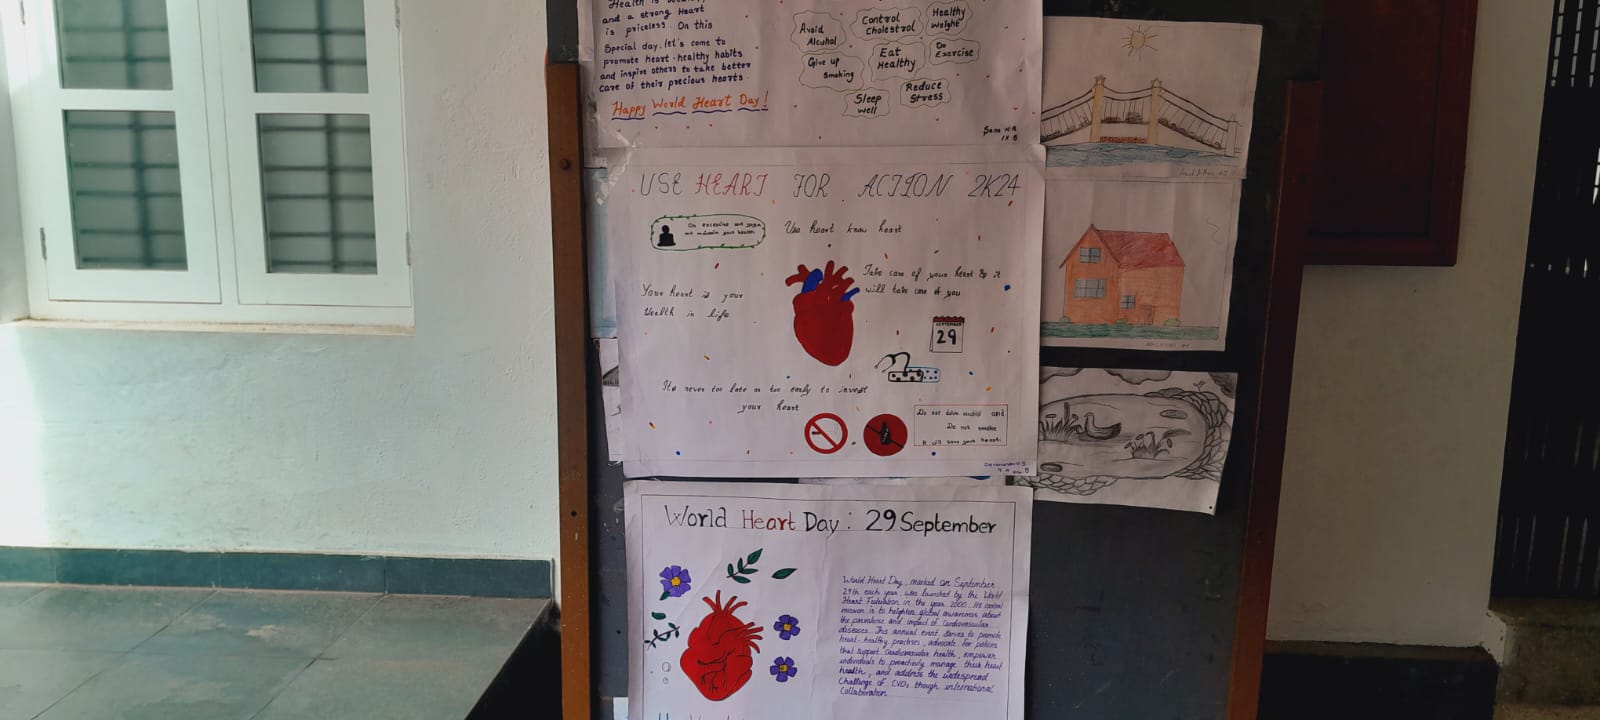 and a strong Heart
is priceless. On this
Special day, let's come to
promote heart-healthy habits
and inspire others to take better
care of their precious hearts.
Happy World Heart Day!
Avoid
Alcohol
Control
Cholestrol
Healthy
Weight
Give up
Smoking
Eat
Healthy
Do
Exercise
Sleep
well
Reduce
Stress
USE HEART FOR ACTION 2K24
Do excersise and yoga
and maintain your health
Use heart know heart
Take care of your heart & it
will take care of you
Your heart is your
Wealth in life
SEPTEMBER
29
It's never too late or too early to invest
your heart
Do not drink alcohol and
Do not smoke
It will save your heart.
World Heart Day : 29 September
World Heart Day, marked on September
29th each year, was launched by the World
Heart Federation in the year 2000. Its central
mission is to heighten global awareness about
the prevalence and impact of cardiovascular
diseases. This annual event serves to promote
heart-healthy practises, advocate for policies
that support cardiovascular health, empower
individuals to proactively manage their heart
health, and address the widespread
Challenge of CVDs though international
Collaboration